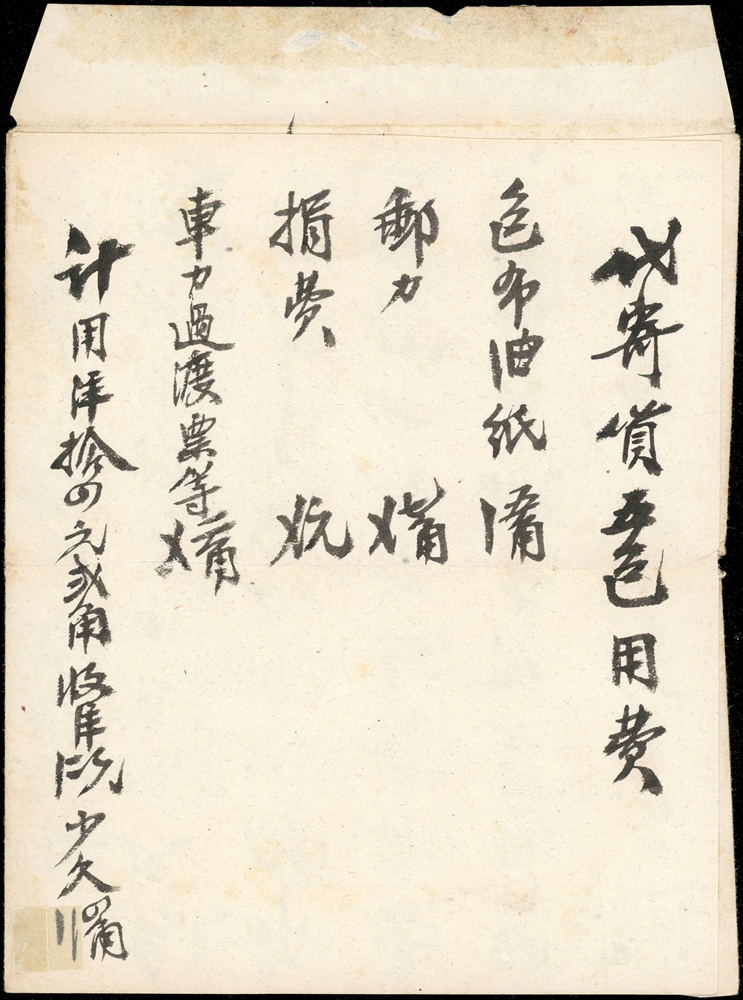 代寄貨五包用費
包布油紙
郵力 〤七角
捐費 〤元
車力過渡票等 〤二角
計用洋拾四元貳角收洋 元少欠 〢角